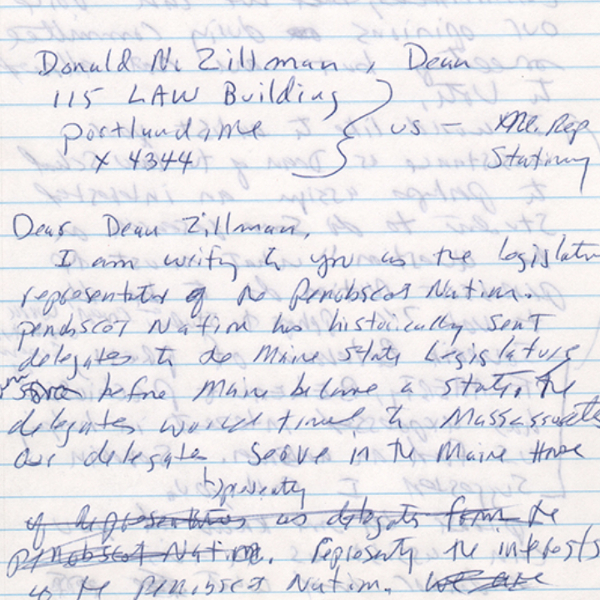 Donald N. Zillman, Dean
115 LAW Building
Portland, Me
x 4344
us - Me. Rep Stationary
Dear Dean Zillman,
I am writing to you as the legislative
representative of the Penobscot Nation.
Penobscot Nation has historically sent
delegates to the Maine State Legislature
even before Maine became a state, the
delegates would travel to Massassuetts
Our delegates serve in the Maine House
representing
of Representatives as delegate form the
Penobscot Nation. Representing the interests
of the Penobscot Nation. We are